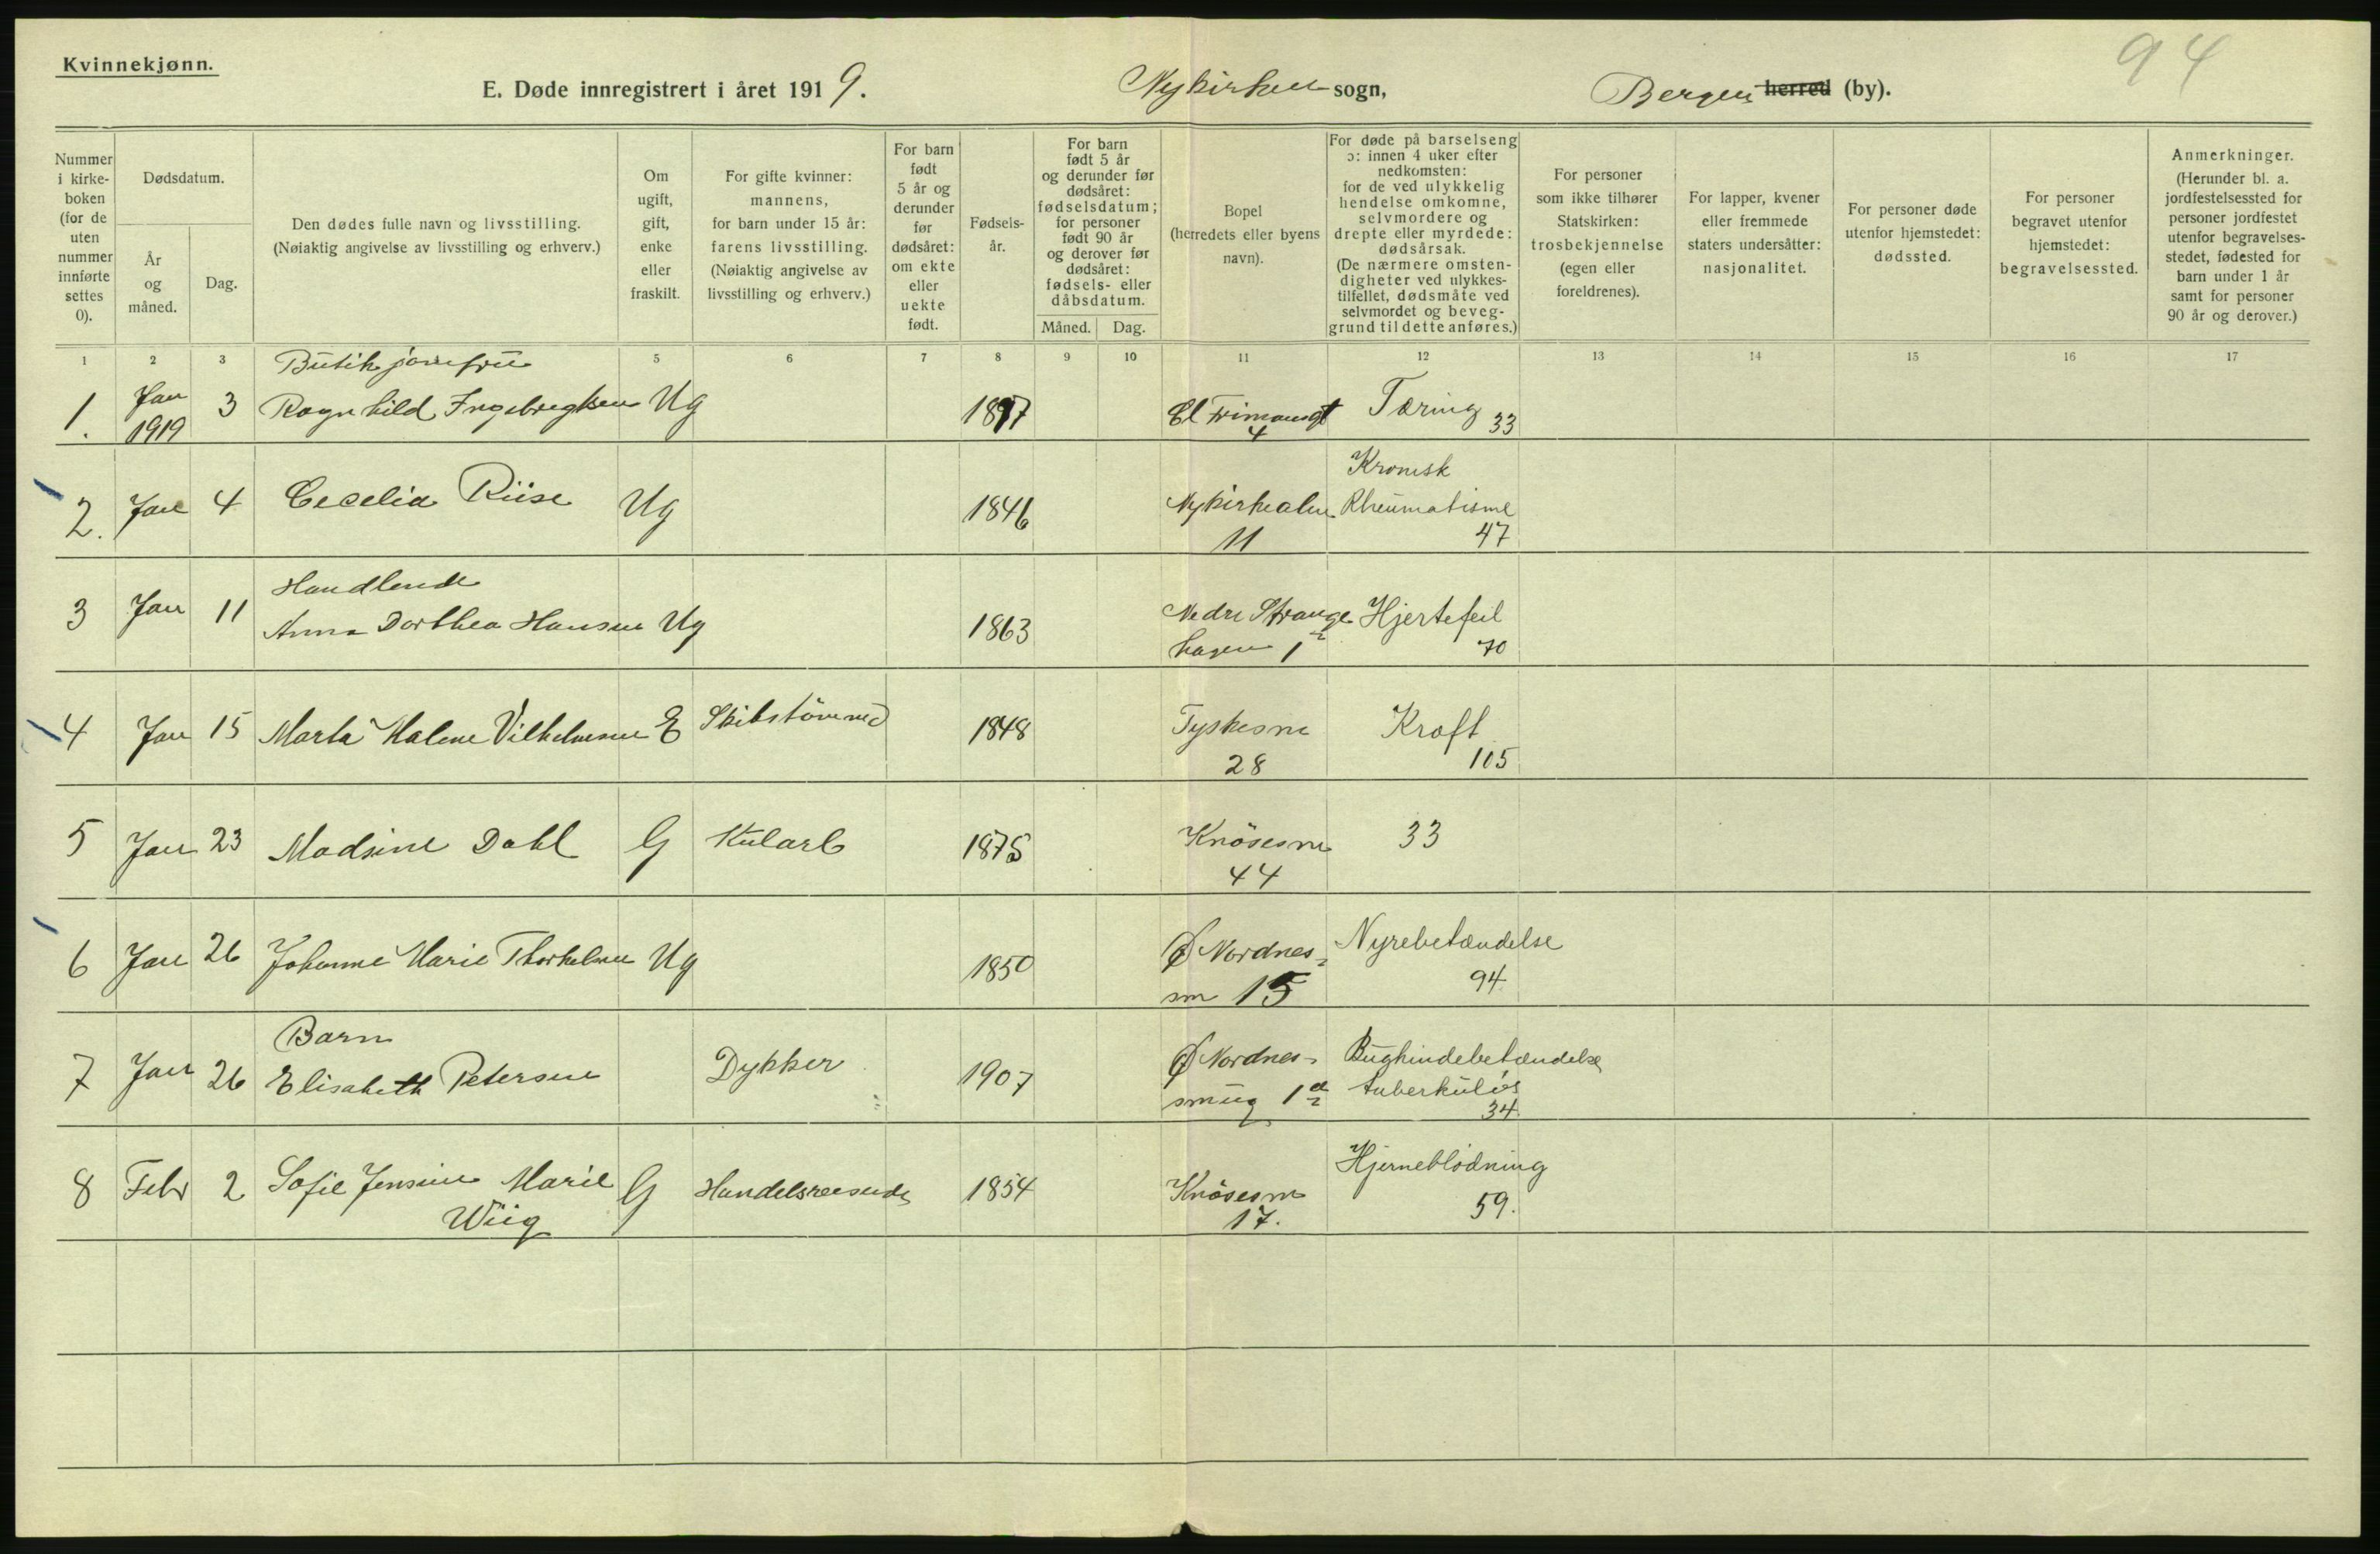 94
Kvinnekjønn.
E. Døde innregistrert i året 1919. Nykirken sogn, Bergen herred (by).
Nummer i kirke-boken (for de uten nummer innførte settes 0).
Dødsdatum.
År og måned.
Dag.
Den dødes fulle navn og livsstilling.
(Nøiaktig angivelse av livsstilling og erhverv.)
Om ugift, gift, enke eller fraskilt.
For gifte kvinner: mannens, for barn under 15 år: farens livsstilling. (Nøiaktig angivelse av livsstilling og erhverv.)
For barn født 5 år og derunder før dødsåret: om ekte eller uekte født.
Fødsels-år.
For barn født 5 år og derunder før dødsåret: fødselsdatum; for personer født 90 år og derover før dødsåret: fødsels- eller dåbsdatum.
Måned. Dag.
Bopel (herredets eller byens navn).
For døde på barselseng ɔ: innen 4 uker efter nedkomsten: for de ved ulykkelig hendelse omkomne, selvmordere og drepte eller myrdede: dødsårsak. (De nærmere omsten-digheter ved ulykkes-tilfellet, dødsmåte ved selvmordet og beveg-grund til dette anføres.)
For personer som ikke tilhører Statskirken: trosbekjennelse (egen eller foreldrenes).
For lapper, kvener eller fremmede staters undersåtter: nasjonalitet.
For personer døde utenfor hjemstedet: dødssted.
For personer begravet utenfor hjemstedet: begravelsessted.
Anmerkninger. (Herunder bl. a. jordfestelsessted for personer jordfestet utenfor begravelses-stedet, fødested for barn under 1 år samt for personer 90 år og derover.)
1 2 3 5 6 7 8 9 10 11 12 13 14 15 16 17
Butikjomfru
1. Jan 1919 3 Ragnhild Ingebregtsen Ug 1897 4 Tæring 33
2. Jan 4 Cecelia Riise Ug 1846 Nykirkealm 11 Kronisk Rheumatisme 47
Handlende
3 Jan 11 Anna Dorthea Hansen Ug 1863 Nedre Strange hagen 1 Hjertefeil 70
4 Jan 15 Marta Malene Vilhelmsen E Skibstömmed 1848 Tyskesm 28 Kræft 105
5 Jan 23 Madsine Dahl G Kularb 1875 Knösesm 44 33
6 Jan 26 Johanne Marie Ug 1850 Ø Nordnes sm 15 Nyrebetændelse 94
Barn
7 Jan 26 Elisabeth Petersen Dykker 1907 Ø Nordnes smug 1 a Bughindebetændelse tuberkuløs 34.
8 Febr 2 Sofie Jensine Marie Wiig G Handelsreisende 1854 Knösesm 17. Hjerneblödning 59.